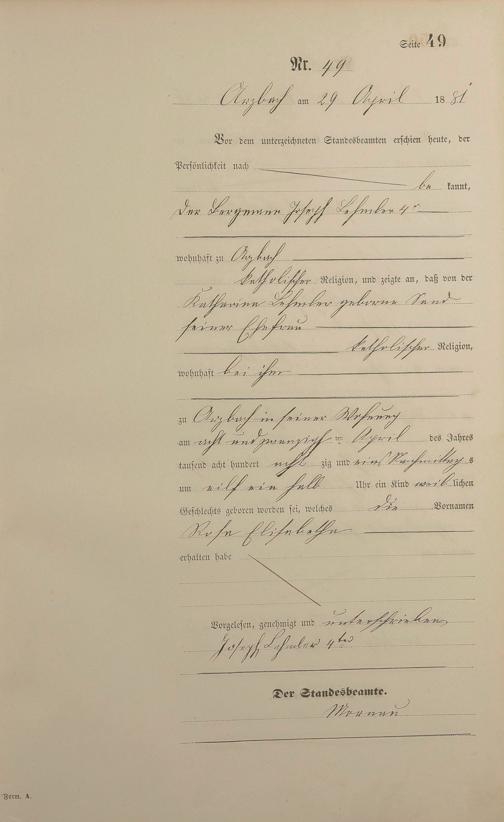 Seite 49
Nr. 49
Arzbach am 29 April 1881
Vor dem unterzeichneten Standesbeamten erschien heute, der
Persönlichkeit nach
be kannt,
der Bergmann Joseph Lehmler 4r
wohnhaft zu Arzbach
katholischer Religion, und zeigte an, daß von der
Katharina Lehmler geborne Sand
seiner Ehefrau
katholischer Religion,
wohnhaft bei ihm
zu Arzbach in seiner Wohnung
am acht und zwanzigsten April des Jahres
tausend acht hundert acht zig und eins Nachmittags
um eilf ein halb Uhr ein Kind weiblichen
Geschlechts geboren worden sei, welches die Vornamen
Rosa Elisabetha
erhalten habe
Vorgelesen, genehmigt und unterschrieben
Joseph Lehmler 4ter
Der Standesbeamte.
Form. A.